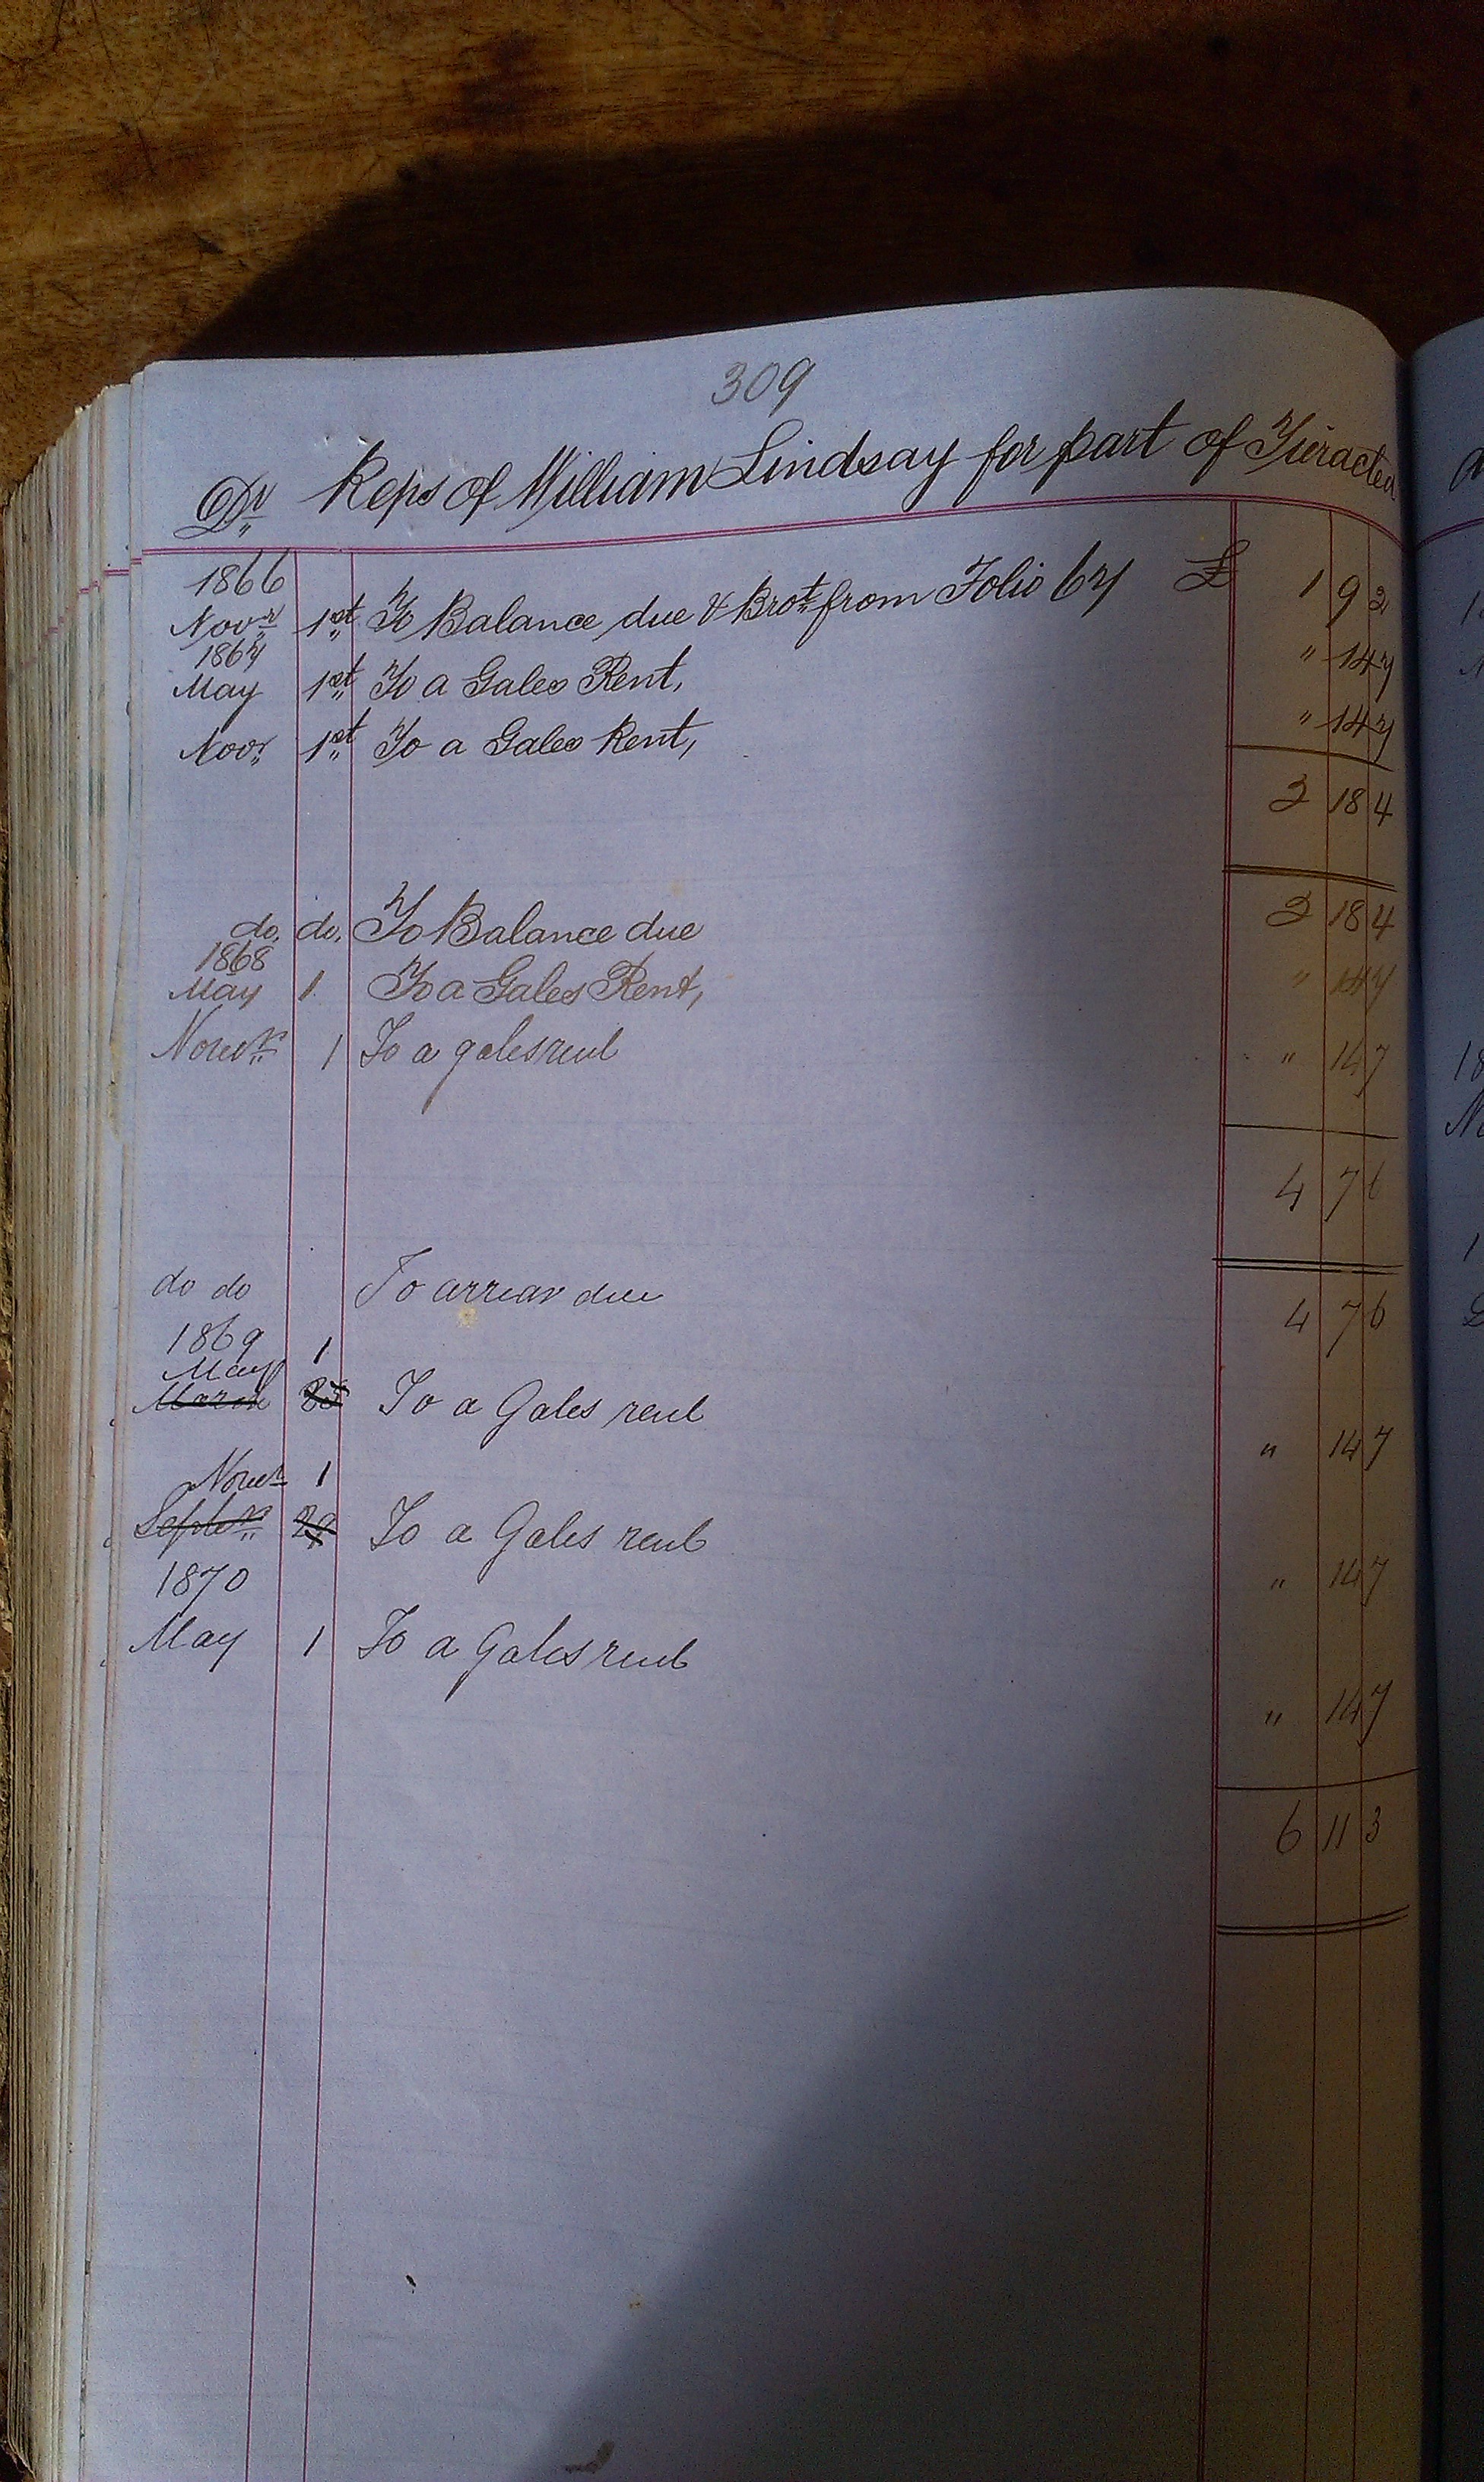 309
Dr Reps of William Lindsay for part of
1866
Novr 1st To Balance due & Brot from Folio 67 £ 1 9 2
1867
May 1st To a Gales Rent, " 14 7
Novr 1st To a Gales Rent, " 14 7
2 18 4
do. do. To Balance due 2 18 4
1868
May 1 To a Gales Rent, " 14 7
Novr 1 To a gales rent " 14 7
4 7 6
do do To arrear due 4 7 6
1869 1
May
March 25 To a Gales rent " 14 7
Novr 1
Septr 29 To a Gales rent " 14 7
1870
May 1 To a Gales rent " 14 7
6 11 3